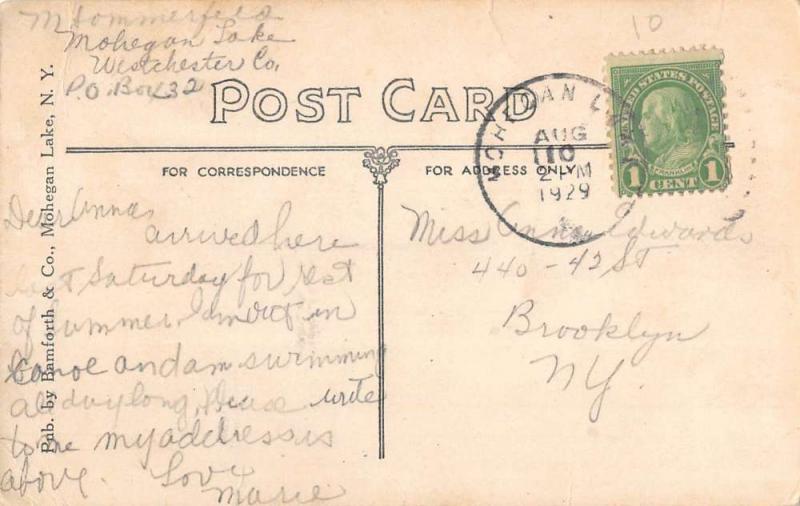 M Sommerfeld
Mohegan Lake
Westchester Co.
P.O. Box 32
10
POST CARD
UNITED STATES POSTAGE
FRANKLIN
1 CENT 1
MOHEGAN
AUG
10
2 PM
1929
FOR CORRESPONDENCE
FOR ADDRESS ONLY
Pub. by Bamforth & Co., Mohegan Lake, N. Y.
Dear Anna,
arrived here
last Saturday for rest
of summer. I'm out in
canoe and am swimming
all day long. Please write
to me my address is
above. Love
Marie
Miss Anna Edwards
440-42 St
Brooklyn
NY.